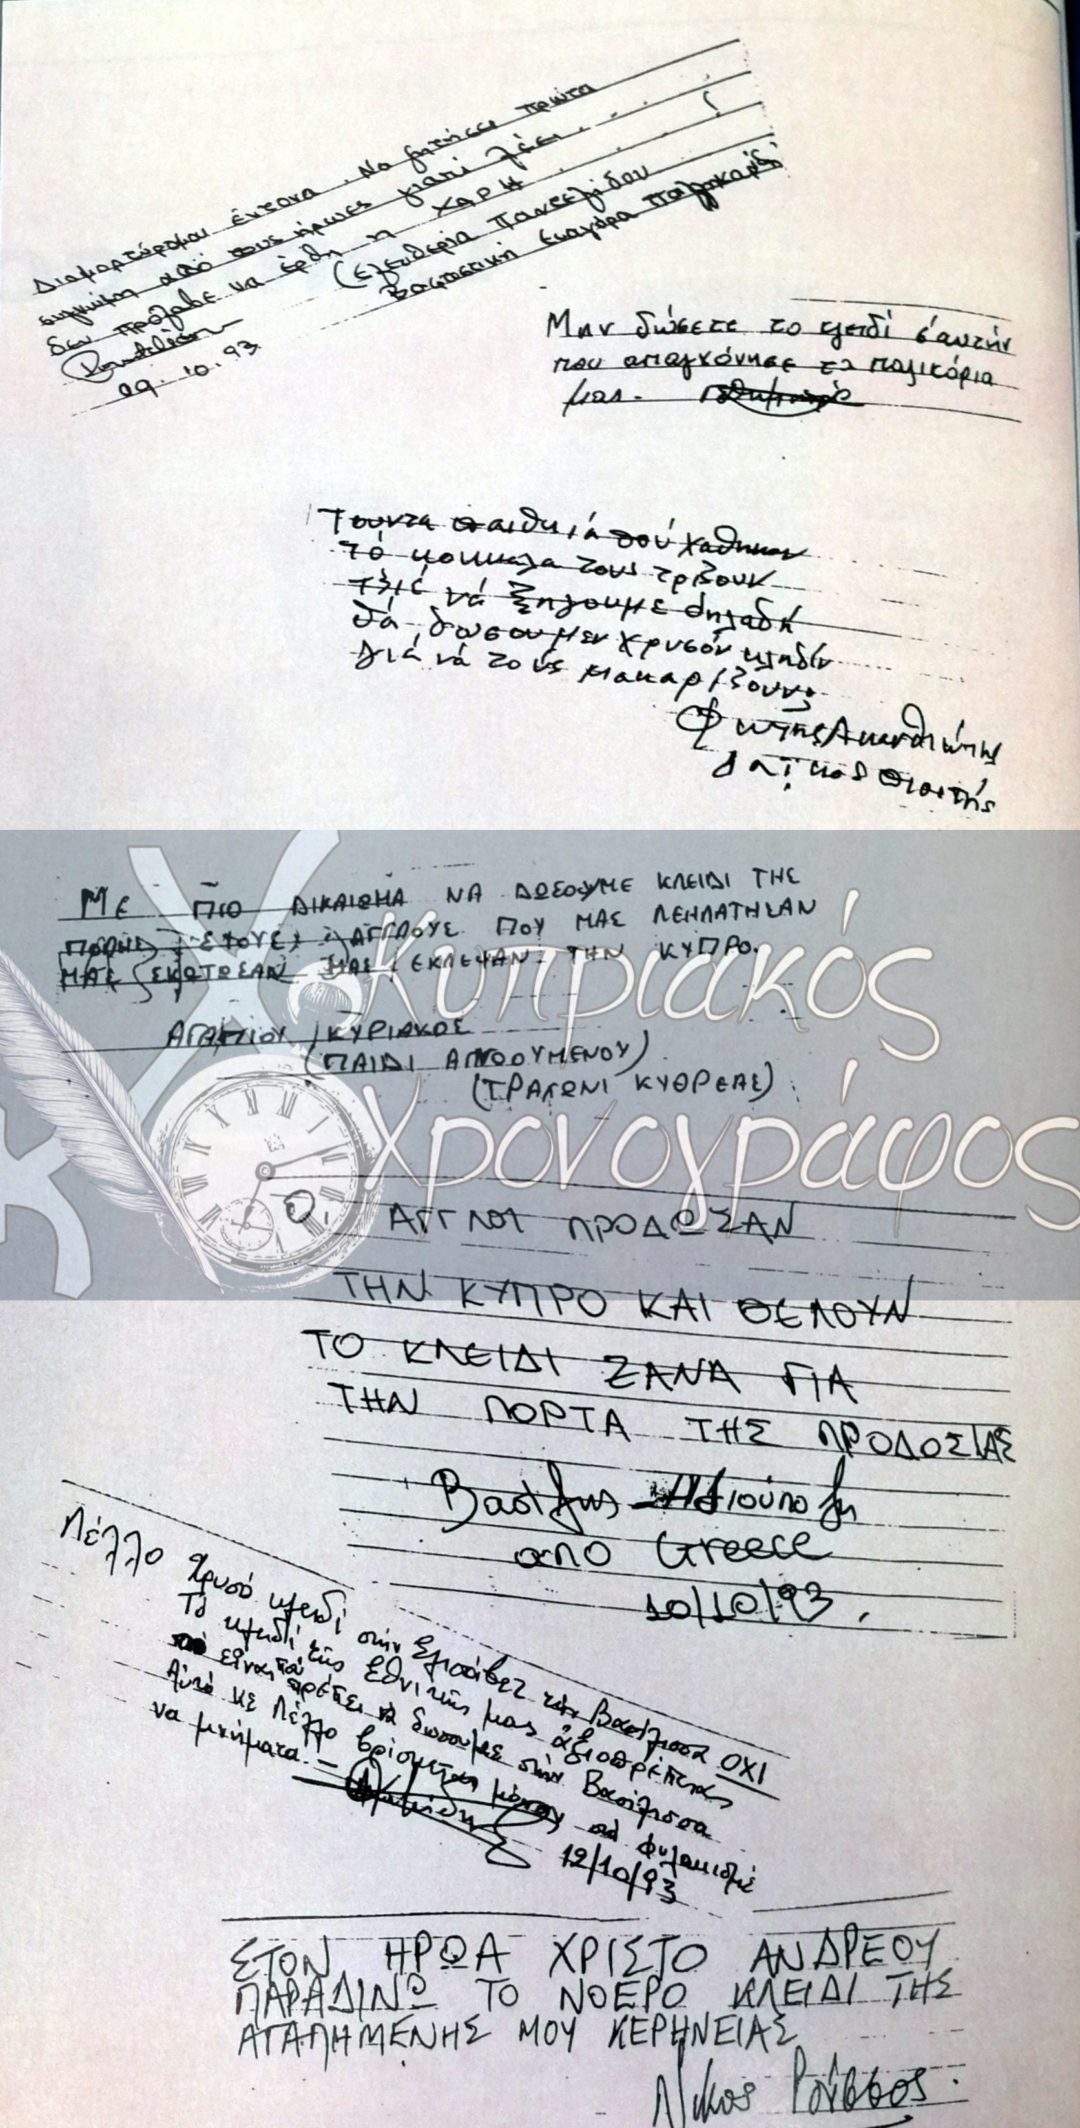 Διαμαρτύρομαι έντονα. Να ζητήσει πρώτα
συγνώμη από τους ήρωες γιατί λέει . . .
δεν πρόλαβε να έρθη η ΧΑΡΗ . . . !
(Ελευθερία Παντελίδου
Βαφτιστική Ευαγόρα Παλληκαρίδη
09.10.93
Μην δώσετε το κλειδί σ'αυτήν
που απαγχόνησε τα παλικάρια
μας.
Τουντα παιθκιά πού χαθηκαν
τά κοκκαλα τους τρίζουν
τζιέ νά ξηχουμε δηλαδή
θά δωσουμεν χρυσόν κληδίν
διά νά τούς μακαρίζουν;
Φωτης Ακανθιώτης
λαϊκος Ποιητής
ΜΕ ΠΙΟ ΔΙΚΑΙΩΜΑ ΝΑ ΔΩΣΟΥΜΕ ΚΛΕΙΔΙ ΤΗΣ
ΣΤΟΥΣ ΑΓΓΛΟΥΣ ΠΟΥ ΜΑΣ ΛΕΗΛΑΤΗΣΑΝ
ΜΑΣ ΣΚΟΤΩΣΑΝ ΜΑΣ ΕΚΛΕΨΑΝ ΤΗΝ ΚΥΠΡΟ.
ΑΓΑΠΙΟΥ ΚΥΡΙΑΚΟΣ
(ΠΑΙΔΙ ΑΓΝΟΟΥΜΕΝΟΥ)
(ΤΡΑΧΩΝΙ ΚΥΘΡΕΑΣ)
Κυπριακός
Χρονογράφος
Οι ΑΓΓΛΟΙ ΠΡΟΔΩΣΑΝ
ΤΗΝ ΚΥΠΡΟ ΚΑΙ ΘΕΛΟΥΝ
ΤΟ ΚΛΕΙΔΙ ΞΑΝΑ ΓΙΑ
ΤΗΝ ΠΟΡΤΑ ΤΗΣ ΠΡΟΔΟΣΙΑΣ
Βασίλης
απο Greece
10/10/93.
Λέλλο
Χρυσό κλειδί στήν Ελισάβετ τήν Βασίλισσα ΟΧΙ
Τό κλειδί της Εθνικής μας αξιοπρέπειας
είναι πρέπει να δωσουμε στήν Βασίλισσα
Αυτό κε Λέλλο βρίσκεται μόνον στά φυλακισμέ
να μνήματα! -
12/10/93
ΣΤΟΝ ΗΡΩΑ ΧΡΙΣΤΟ ΑΝΔΡΕΟΥ
ΠΑΡΑΔΙΝΩ ΤΟ ΝΟΕΡΟ ΚΛΕΙΔΙ ΤΗΣ
ΑΓΑΠΗΜΕΝΗΣ ΜΟΥ ΚΕΡΗΝΕΙΑΣ
Νίκος Ρούσσος.